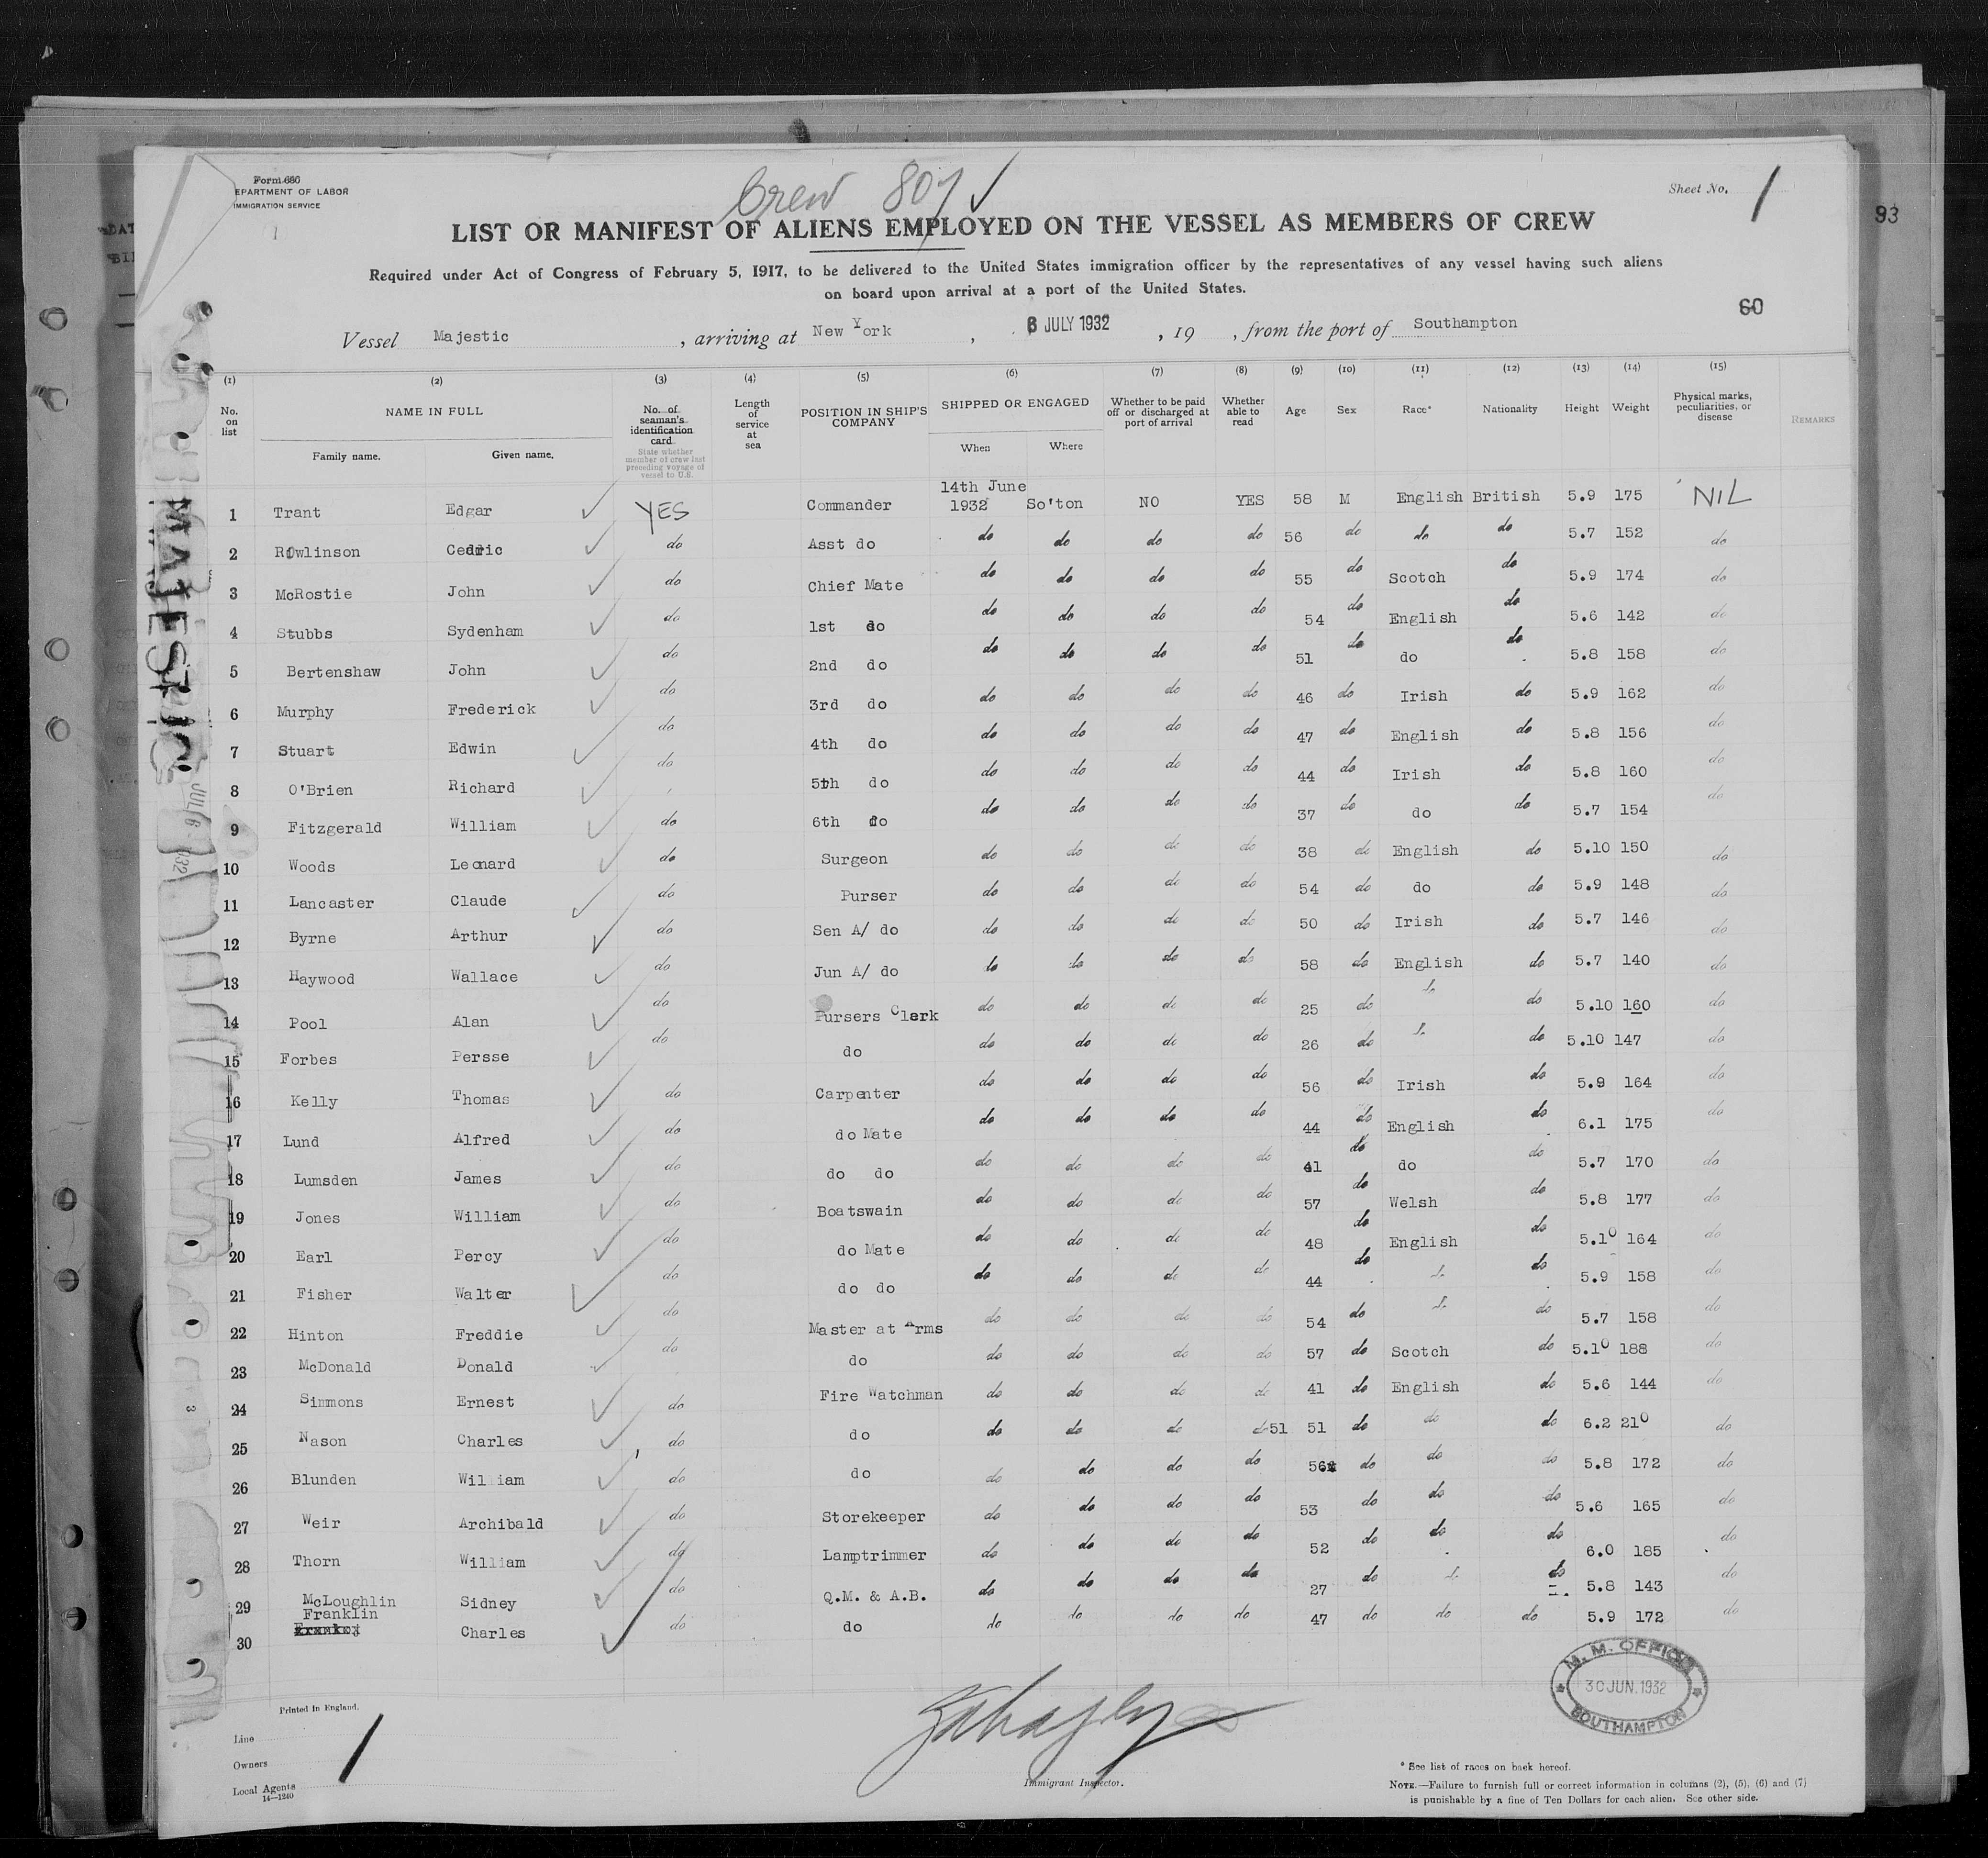 Form 686
DEPARTMENT OF LABOR
IMMIGRATION SERVICE
Crew 807 ✓
Sheet No. 1
93
LIST OR MANIFEST OF ALIENS EMPLOYED ON THE VESSEL AS MEMBERS OF CREW
Required under Act of Congress of February 5, 1917, to be delivered to the United States immigration officer by the representatives of any vessel having such aliens
on board upon arrival at a port of the United States.
60
Vessel Majestic , arriving at New York , 6 JULY 1932 , 19 , from the port of Southampton
(1) (2) (3) (4) (5) (6) (7) (8) (9) (10) (11) (12) (13) (14) (15)
No. on list NAME IN FULL Family name. Given name. No. of seaman's identification card State whether member of crew last preceding voyage of vessel to U.S. Length of service at sea POSITION IN SHIP'S COMPANY SHIPPED OR ENGAGED When Where Whether to be paid off or discharged at port of arrival Whether able to read Age Sex Race* Nationality Height Weight Physical marks, peculiarities, or disease REMARKS
1 Trant Edgar ✓ YES Commander 14th June 1932 So'ton NO YES 58 M English British 5.9 175 NIL
2 Rowlinson Cedric ✓ do Asst do do do do do 56 do do do 5.7 152 do
3 McRostie John ✓ do Chief Mate do do do do 55 do Scotch do 5.9 174 do
4 Stubbs Sydenham ✓ do 1st do do do do do 54 do English do 5.6 142 do
5 Bertenshaw John ✓ do 2nd do do do do do 51 do do do 5.8 158 do
6 Murphy Frederick ✓ do 3rd do do do do do 46 do Irish do 5.9 162 do
7 Stuart Edwin ✓ do 4th do do do do do 47 do English do 5.8 156 do
8 O'Brien Richard ✓ do 5th do do do do do 44 do Irish do 5.8 160 do
9 Fitzgerald William ✓ do 6th do do do do do 37 do do do 5.7 154 do
10 Woods Leonard ✓ do Surgeon do do do do 38 do English do 5.10 150 do
11 Lancaster Claude ✓ do Purser do do do do 54 do do do 5.9 148 do
12 Byrne Arthur ✓ do Sen A/ do do do do do 50 do Irish do 5.7 146 do
13 Haywood Wallace ✓ do Jun A/ do do do do do 58 do English do 5.7 140 do
14 Pool Alan ✓ do Pursers Clerk do do do do 25 do do do 5.10 160 do
15 Forbes Persse ✓ do do do do do do 26 do do do 5.10 147 do
16 Kelly Thomas ✓ do Carpenter do do do do 56 do Irish do 5.9 164 do
17 Lund Alfred ✓ do do Mate do do do do 44 do English do 6.1 175 do
18 Lumsden James ✓ do do do do do do do 41 do do do 5.7 170 do
19 Jones William ✓ do Boatswain do do do do 57 do Welsh do 5.8 177 do
20 Earl Percy ✓ do do Mate do do do do 48 do English do 5.10 164 do
21 Fisher Walter ✓ do do do do do do do 44 do do do 5.9 158 do
22 Hinton Freddie ✓ do Master at Arms do do do do 54 do do do 5.7 158 do
23 McDonald Donald ✓ do do do do do do 57 do Scotch do 5.10 188 do
24 Simmons Ernest ✓ do Fire Watchman do do do do 41 do English do 5.6 144 do
25 Nason Charles ✓ do do do do do do 51 51 do do do 6.2 210 do
26 Blunden William ✓ do do do do do do 56 do do do 5.8 172 do
27 Weir Archibald ✓ do Storekeeper do do do do 53 do do do 5.6 165 do
28 Thorn William ✓ do Lamptrimmer do do do do 52 do do do 6.0 185 do
29 McLoughlin Sidney ✓ do Q.M. & A.B. do do do do 27 do do do 5.8 143 do
30 Franklin Charles ✓ do do do do do do 47 do do do 5.9 172 do
MAJESTIC
JUL 6 1932
M. M. OFFICE
30 JUN. 1932
SOUTHAMPTON
Printed in England.
Line
Owners
Local Agents
14—1240
1
Immigrant Inspector.
* See list of races on back hereof.
NOTE.—Failure to furnish full or correct information in columns (2), (5), (6) and (7)
is punishable by a fine of Ten Dollars for each alien. See other side.